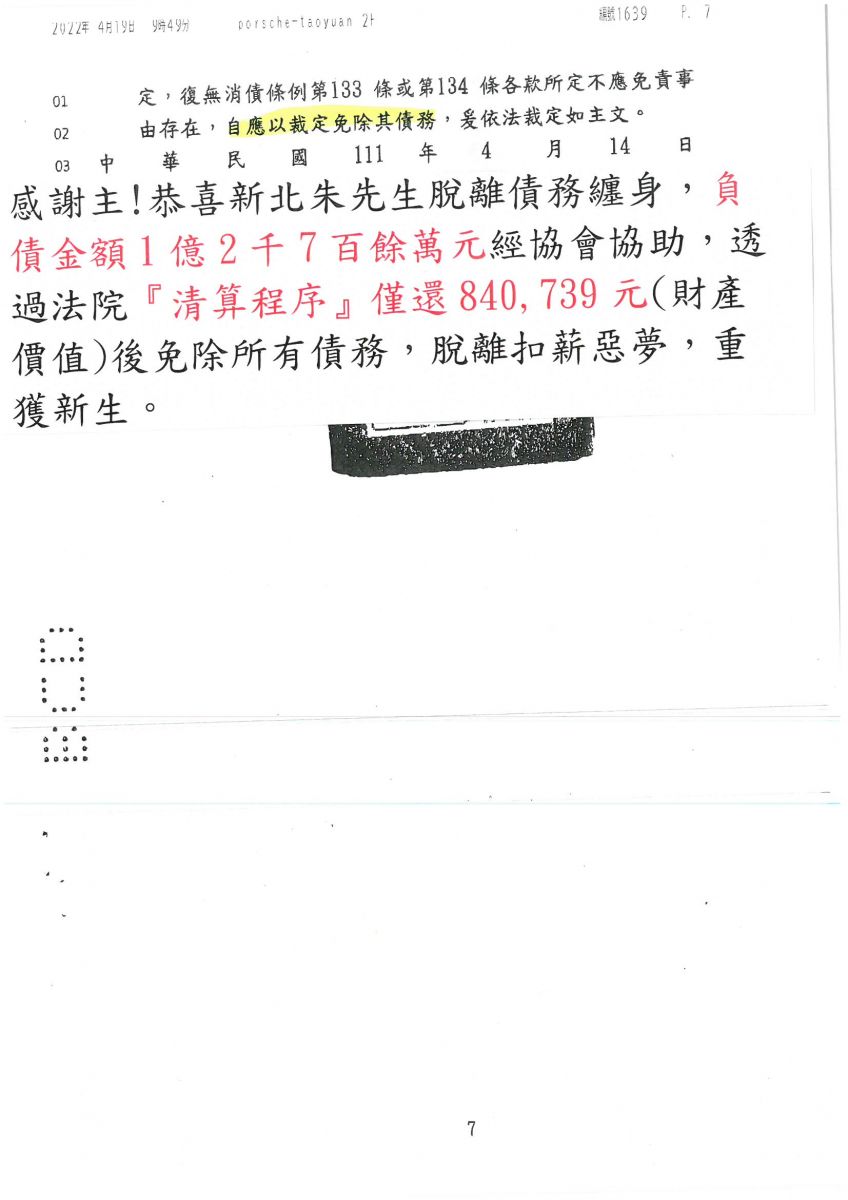 2022年 4月19日 9時49分 porsche-taoyuan 2F 編號1639 P. 7
01 定，復無消債條例第133 條或第134 條各款所定不應免責事
02 由存在，自應以裁定免除其債務，爰依法裁定如主文。
03 中 華 民 國 111 年 4 月 14 日
感謝主!恭喜新北朱先生脫離債務纏身，負
債金額1億2千7百餘萬元經協會協助，透
過法院『清算程序』僅還840,739元(財產
價值)後免除所有債務，脫離扣薪惡夢，重
獲新生。
7